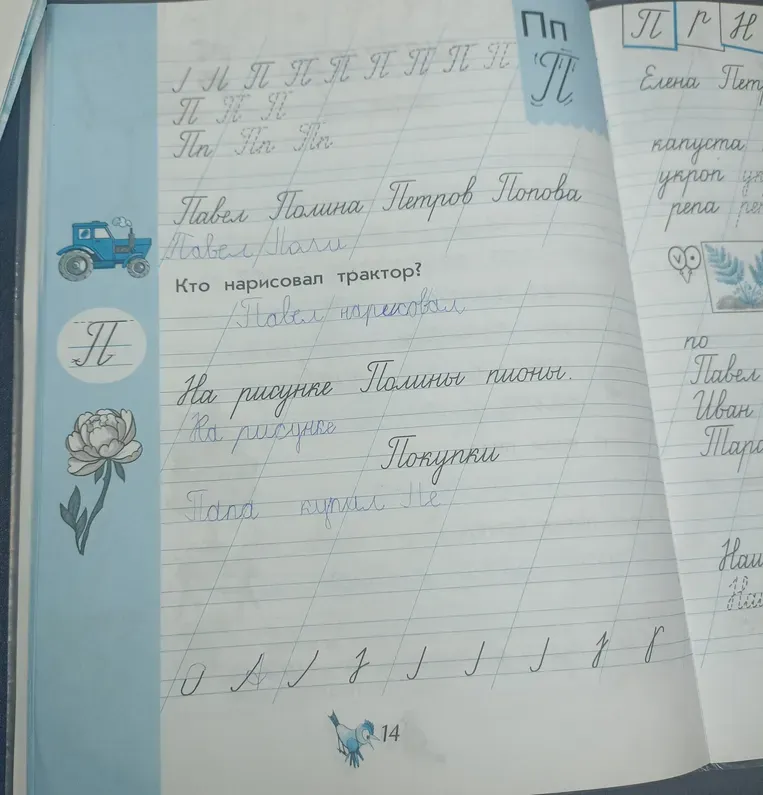 Пп
П
П П П П П П П
П П П
Пп Пп Пп
Павел Полина Петров Попова
Павел Поли
Кто нарисовал трактор?
Павел нарисовал
П
На рисунке Полины пионы.
На рисунке
Покупки
Папа купил Пе
14
П г Н
Елена Петр
капуста
укроп ук
репа реп
по
Павел
Иван
Тара
Наш